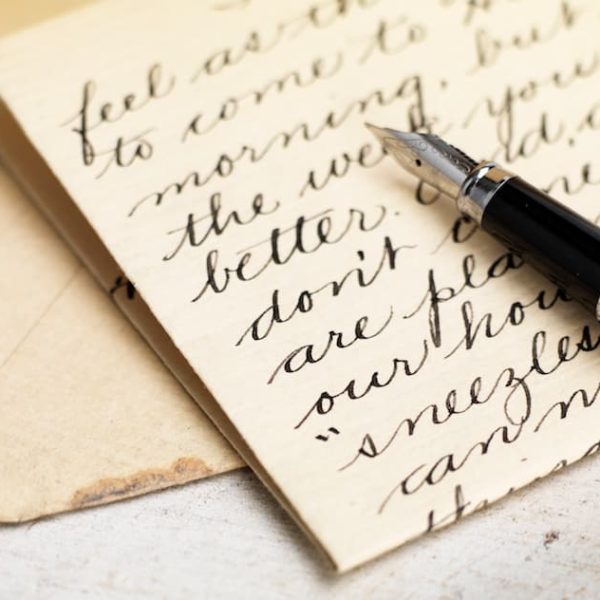 feel as th
to come to
morning, but
the week you
better.
don't
are pla
our hou
"sneezles
can n